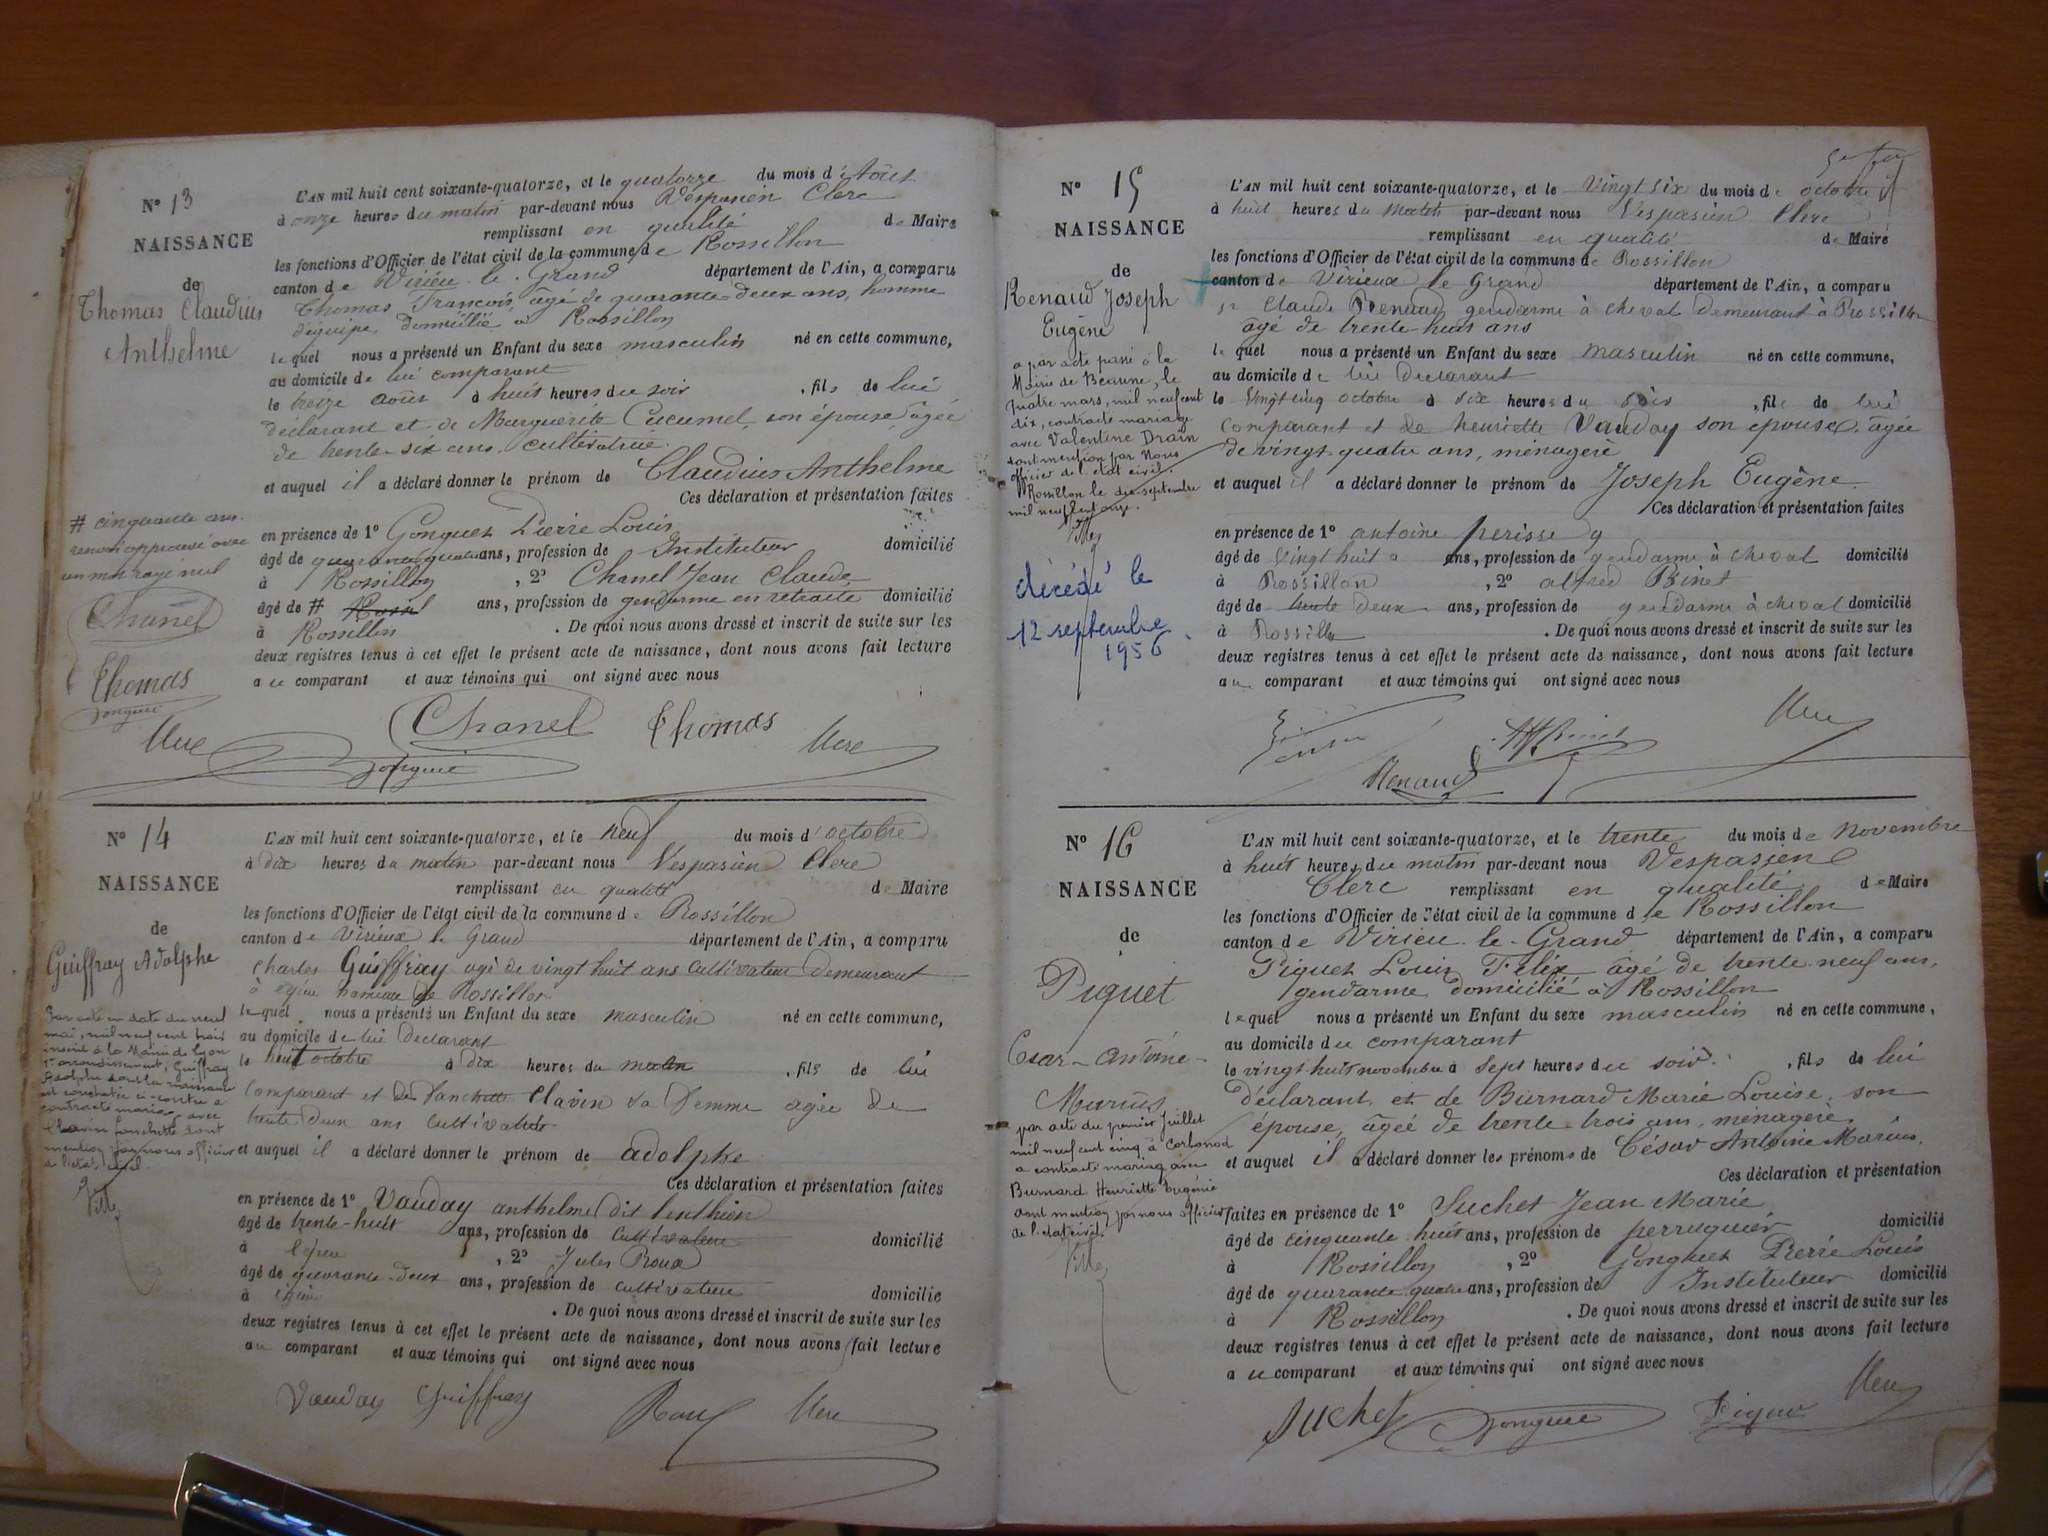 N° 13
NAISSANCE
de
Thomas Claudius
Anthelme
# cinquante ans.
renvoi approuvé avec
un mot rayé nul
Chanel
Thomas
Gonguet
Clerc
L'AN mil huit cent soixante-quatorze, et le quatorze du mois d'Août
à onze heures du matin par-devant nous Vespasien Clerc
remplissant en qualité de Maire
les fonctions d'Officier de l'état civil de la commune de Rossillon
canton de Virieu-le-Grand département de l'Ain, a comparu
Thomas François, âgé de quarante-deux ans, homme
d'équipe, domicilié à Rossillon
lequel nous a présenté un Enfant du sexe masculin né en cette commune,
au domicile de lui comparant
le treize août à huit heures du soir, fils de lui
déclarant et de Marguerite Cucumel, son épouse, âgée
de trente-six ans, cultivatrice.
et auquel il a déclaré donner le prénom de Claudius Anthelme
Ces déclaration et présentation faites
en présence de 1° Gonguet Pierre Louis
âgé de quarante quatre ans, profession de Instituteur domicilié
à Rossillon, 2° Chanel Jean Claude
âgé de # ans, profession de gendarme en retraite domicilié
à Rossillon. De quoi nous avons dressé et inscrit de suite sur les
deux registres tenus à cet effet le présent acte de naissance, dont nous avons fait lecture
au comparant et aux témoins qui ont signé avec nous
Chanel Thomas Clerc
Gonguet
N° 14
NAISSANCE
de
Guiffray Adolphe
Par acte en date du neuf
mai, mil neuf cent trois
inscrit à la Mairie de Lyon
arrondissement, Guiffray
Adolphe dont la naissance
est constatée ci-contre a
contracté mariage avec
fanchette dont
mention par nous officier
de l'état civil.
L'AN mil huit cent soixante-quatorze, et le neuf du mois d'octobre
à dix heures du matin par-devant nous Vespasien Clerc
remplissant en qualité de Maire
les fonctions d'Officier de l'état civil de la commune de Rossillon
canton de Virieux le Grand département de l'Ain, a comparu
Charles Guiffray agé de vingt huit ans cultivateur demeurant
à hameau de Rossillon
lequel nous a présenté un Enfant du sexe masculin né en cette commune,
au domicile de lui declarant
le huit octobre à dix heures du matin, fils de lui
comparant et de fanchette Clavin sa femme agée de
trente deux ans
et auquel il a déclaré donner le prénom de adolphe
Ces déclaration et présentation faites
en présence de 1° Vauday anthelme dit
âgé de trente-huit ans, profession de cultivateur domicilié
à, 2° Jules Roux
âgé de quarante-deux ans, profession de cultivateur domicilié
à. De quoi nous avons dressé et inscrit de suite sur les
deux registres tenus à cet effet le présent acte de naissance, dont nous avons fait lecture
au comparant et aux témoins qui ont signé avec nous
Vauday Guiffray Roux Clerc
N° 15
NAISSANCE
de
Renaud Joseph
Eugène
a par acte passé à la
Mairie de Beaune, le
quatre mars, mil neuf cent
dix, contracté mariage
avec Valentine Drain
dont mention par Nous
officier de l'état civil.
Rossillon le dix septembre
mil neuf cent onze.
décédé le
12 septembre
1956
L'AN mil huit cent soixante-quatorze, et le vingt six du mois de octobre
à huit heures du matin par-devant nous Vespasien Clerc
remplissant en qualité de Maire
les fonctions d'Officier de l'état civil de la commune de Rossillon
canton de Virieux le Grand département de l'Ain, a comparu
sr Claude Renaud gendarme à cheval demeurant à Rossillon
âgé de trente huit ans
lequel nous a présenté un Enfant du sexe masculin né en cette commune,
au domicile de lui declarant
le vingt cinq octobre à six heures du soir, fils de lui
comparant et de henriette Vauday son épouse, agée
de vingt-quatre ans, ménagère
et auquel il a déclaré donner le prénom de Joseph Eugène
Ces déclaration et présentation faites
en présence de 1° antoine
âgé de vingt huit ans, profession de gendarme à cheval domicilié
à Rossillon, 2° alfred Binet
âgé de trente deux ans, profession de gendarme à cheval domicilié
à Rossillon. De quoi nous avons dressé et inscrit de suite sur les
deux registres tenus à cet effet le présent acte de naissance, dont nous avons fait lecture
au comparant et aux témoins qui ont signé avec nous
Binet Clerc
Renaud
N° 16
NAISSANCE
de
Piguet
César-Antoine-
Marius
par acte du premier juillet
mil neuf cent cinq à Corbonod
a contracté mariage avec
Burnard Henriette Eugénie
dont mention par nous officier
de l'état civil.
L'AN mil huit cent soixante-quatorze, et le trente du mois de novembre
à huit heures du matin par-devant nous Vespasien
Clerc remplissant en qualité de Maire
les fonctions d'Officier de l'état civil de la commune de Rossillon
canton de Virieu-le-Grand département de l'Ain, a comparu
Piguet Louis Félix âgé de trente-neuf ans,
gendarme domicilié à Rossillon
lequel nous a présenté un Enfant du sexe masculin né en cette commune,
au domicile du comparant
le vingt-huit novembre à sept heures du soir, fils de lui
déclarant et de Burnard Marie Louise, son
épouse, âgée de trente-trois ans, ménagère.
et auquel il a déclaré donner les prénoms de César Antoine Marius.
Ces déclaration et présentation
faites en présence de 1° Suchet Jean Marie
âgé de cinquante huit ans, profession de perruquier domicilié
à Rossillon, 2° Gonguet Pierre Louis
âgé de quarante-quatre ans, profession de Instituteur domicilié
à Rossillon. De quoi nous avons dressé et inscrit de suite sur les
deux registres tenus à cet effet le présent acte de naissance, dont nous avons fait lecture
au comparant et aux témoins qui ont signé avec nous
Suchet Gonguet Piguet Clerc